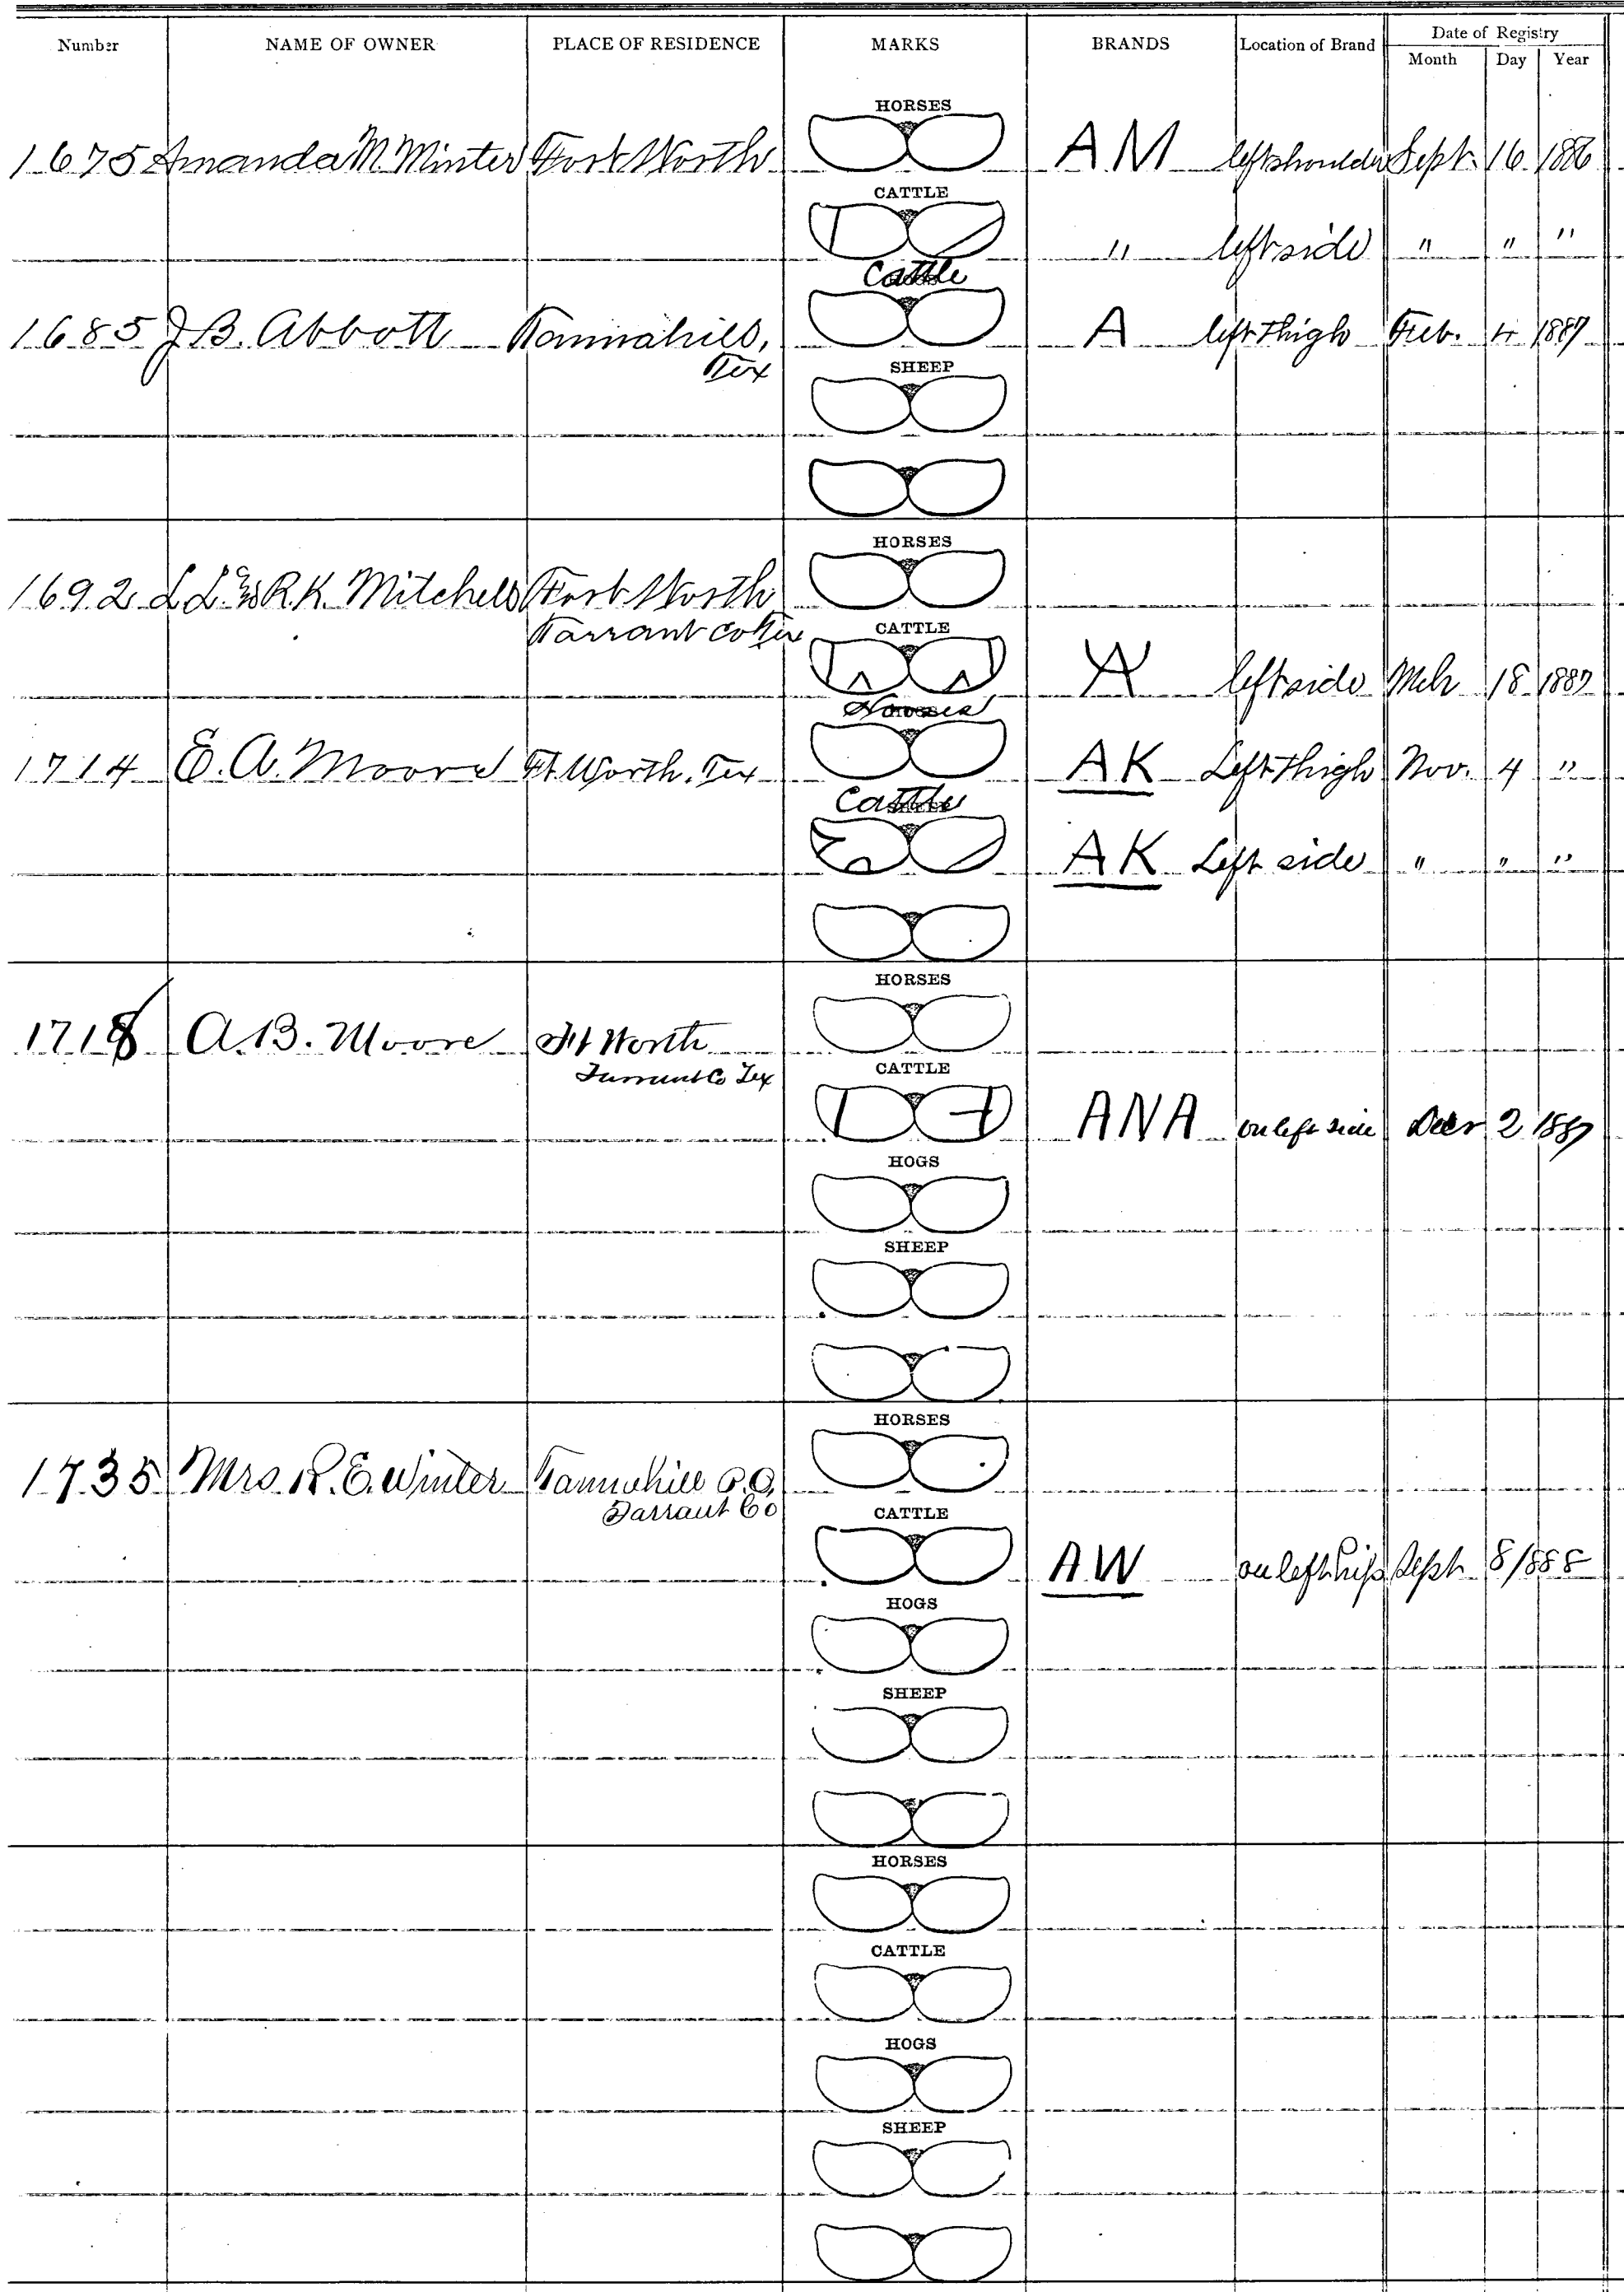 Number NAME OF OWNER PLACE OF RESIDENCE MARKS BRANDS Location of Brand Date of Registry
Month Day Year
HORSES
1675 Amanda M Minter Fort Worth AM left shoulder Sept. 16 1886
CATTLE
" left side " " "
Cattle
1685 J B. Abbott Tannahill, A left thigh Feb. 4 1887
Tex
SHEEP
HORSES
1692 L L & R.K. Mitchell Fort Worth
Tarrant Co Tex
CATTLE
A left side Mch 18 1887
Horses
1714 E. A. Moore Ft. Worth. Tex AK Left thigh Nov. 4 "
Cattle
AK Left side " " "
HORSES
1718 A. B. Moore Ft Worth
Tarrant Co Tex
CATTLE
ANA on left side Decr 2 1887
HOGS
SHEEP
HORSES
1735 Mrs. R. E. Winter Tannahill P.O.
Tarrant Co
CATTLE
AW on left hip Sept 8 1888
HOGS
SHEEP
HORSES
CATTLE
HOGS
SHEEP